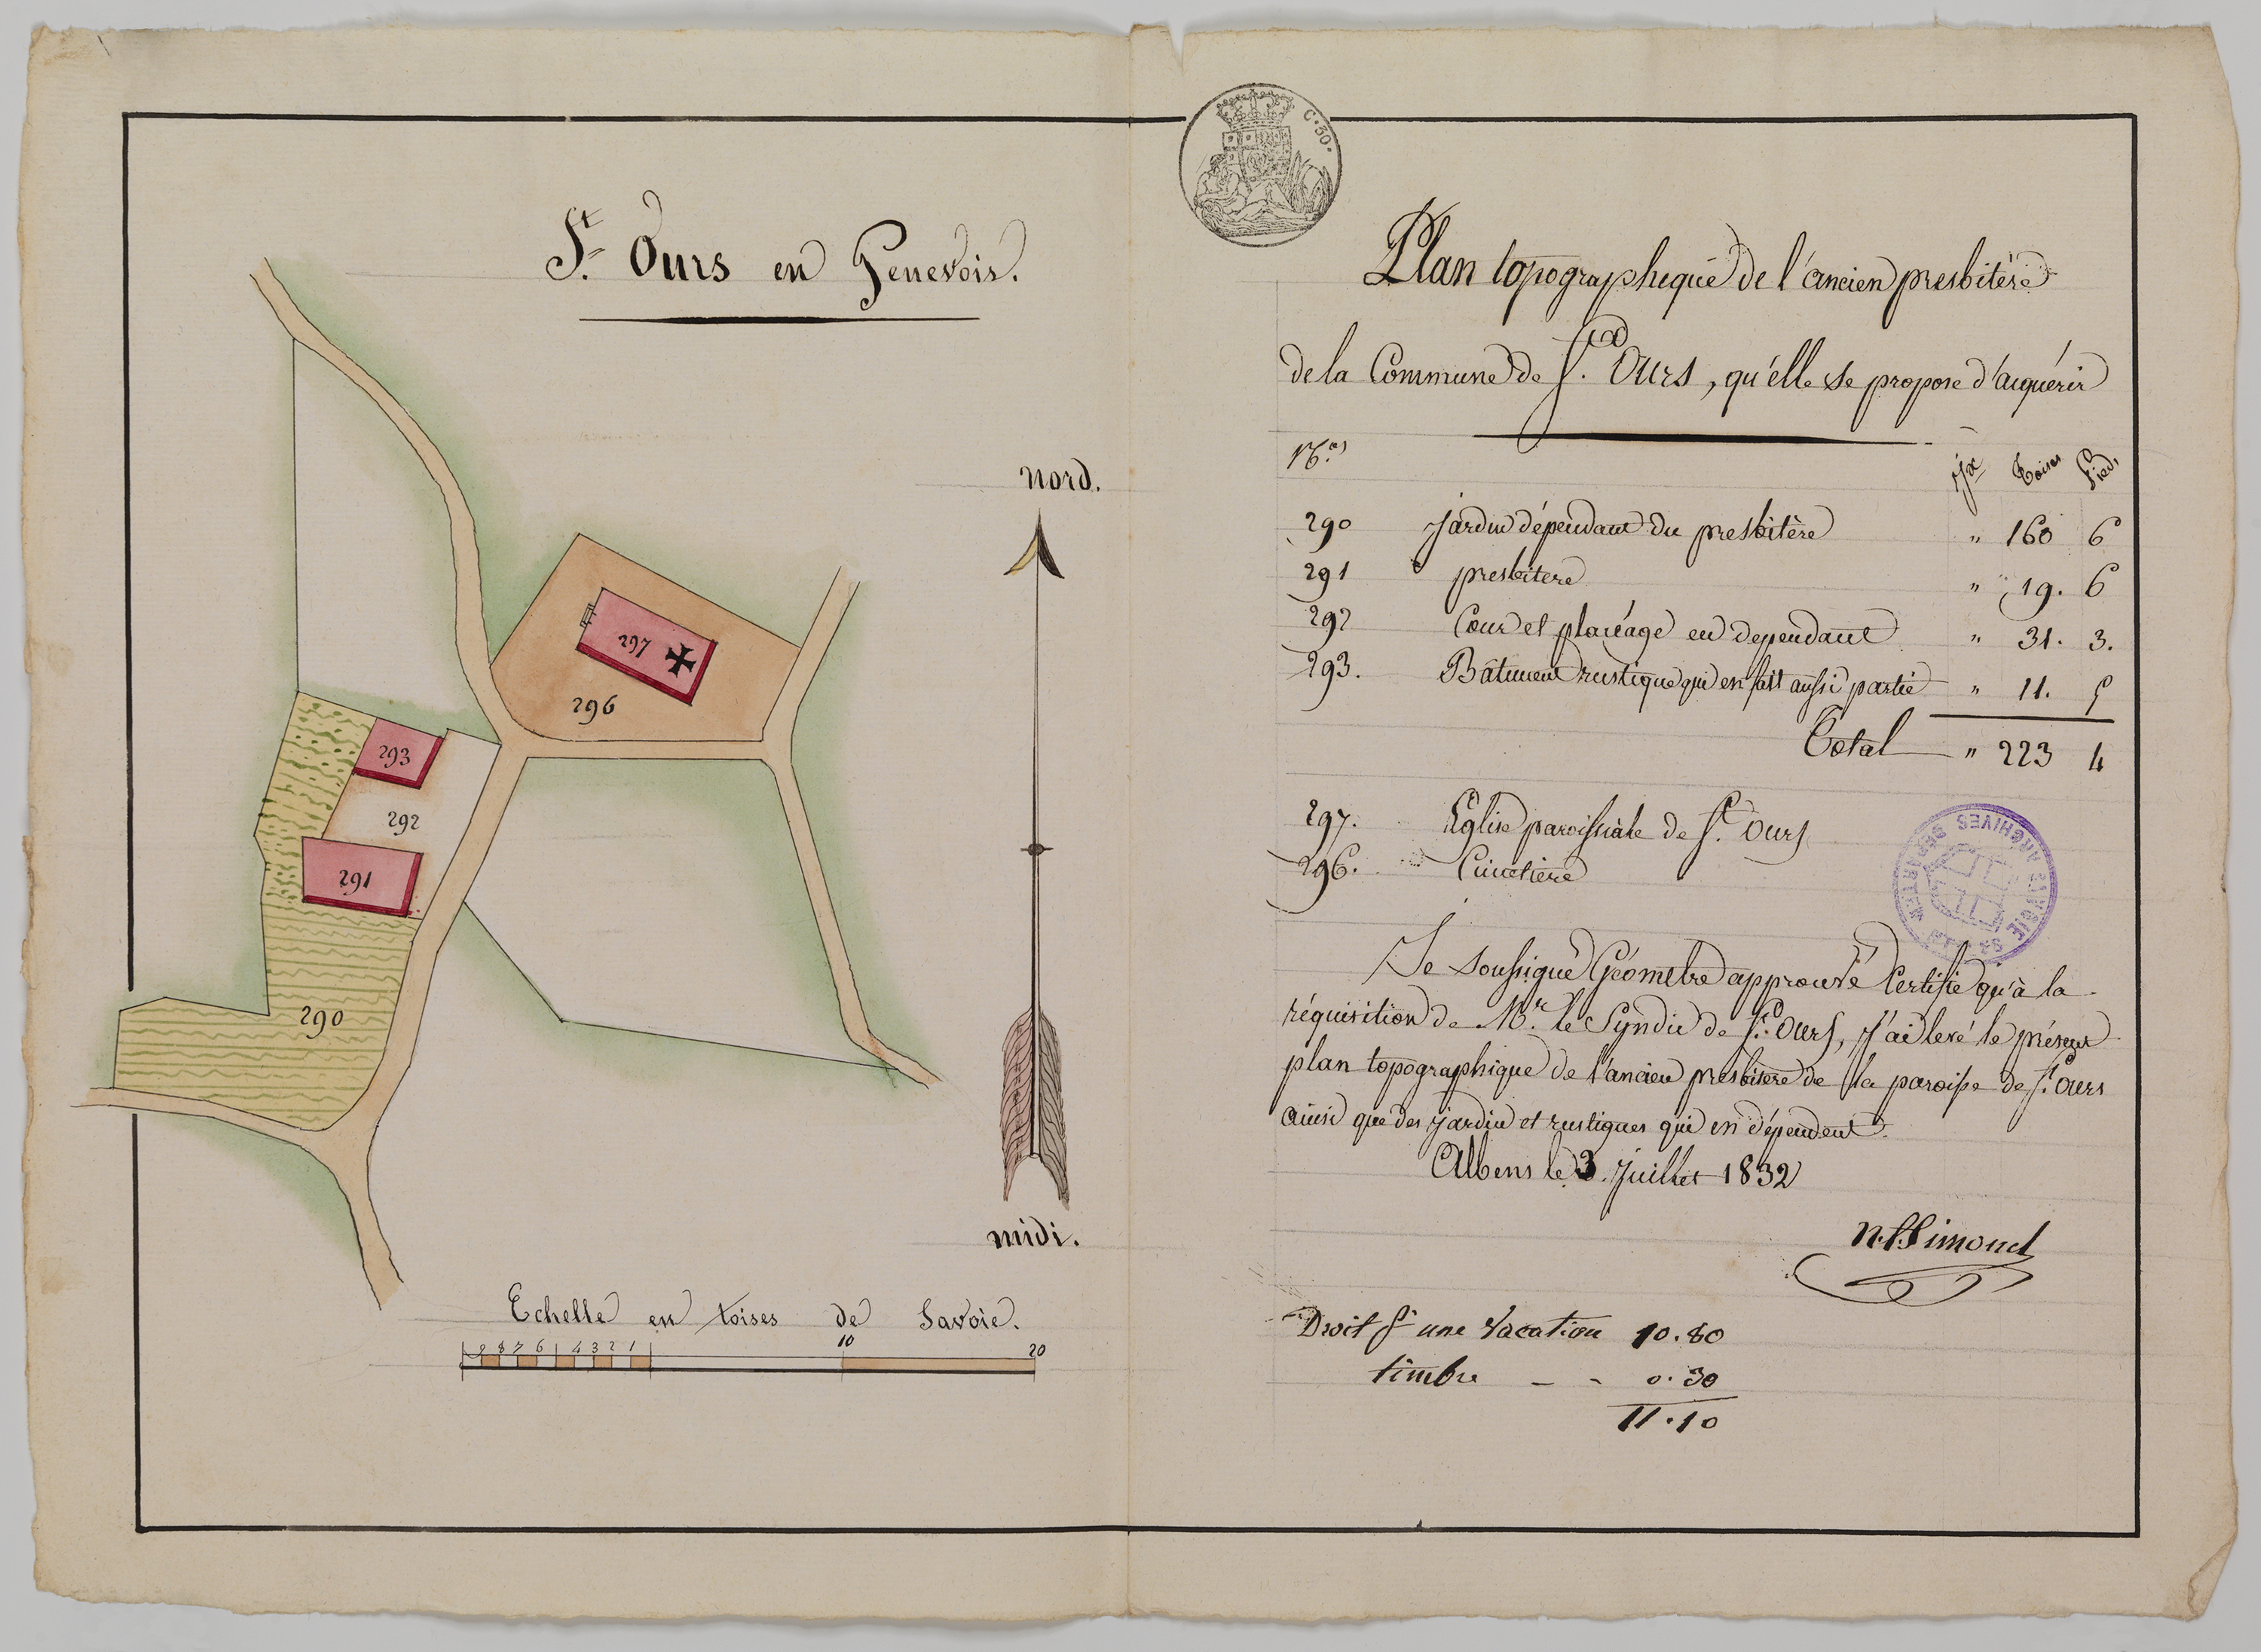 St. Ours en Genevois.
293
292
291
290
297
296
nord.
midi.
Echelle en toises de Savoie.
9 8 7 6 4 3 2 1 10 20
C. 30.
Plan topographique de l'ancien presbitère
de la Commune de St. Ours, qu'elle se propose d'acquérir
Nos Jx Toises Pied,
290 jardin dépendant du presbitère " 160 6
291 presbitere " 19. 6
292 Cour et placéage en dependant " 31. 3.
293. Bâtiment rustique qui en fait aussi partie " 11. 5
Total " 223 4
297. Eglise paroissiale de St. Ours
296. Cimetière
ARCHIVES DÉPARTEM SAVOIE
Je soussigné Géomètre approuvé Certifie qu'à la
réquisition de Mr. le Syndic de St. Ours, j'ai levé le présent
plan topographique de l'ancien presbitere de la paroisse de St. Ours
ainsi que des jardin et rustiques qui en dépendent.
Albens le 3. Juillet 1832
Simond
Droit pr une vacation 10.80
timbre - - 0.30
11.10